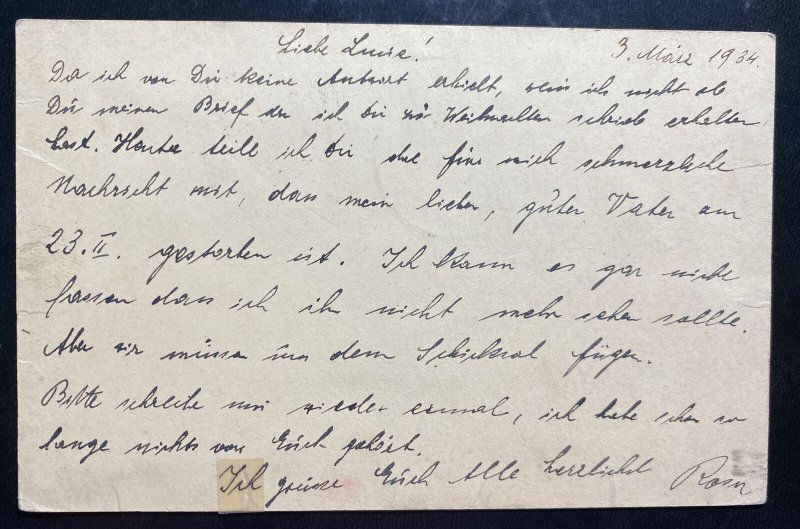 3. März 1934.
Liebe Luise!
Da ich von Dir keine Antwort erhielt, weis ich nicht ob
Du meinen Brief den ich dir vor Weihnachten schrieb erhalten
hast. Heute teile ich dir die für mich schmerzliche
Nachricht mit, dass mein lieber, guter Vater am
23. II. gestorben ist. Ich kann es gar nicht
fassen dass ich ihn nicht mehr sehen sollte.
Aber wir müssen uns dem Schicksal fügen.
Bitte schreibe mir wieder einmal, ich habe schon so
lange nichts von Euch gehört.
Ich grüsse Euch Alle herzlichst